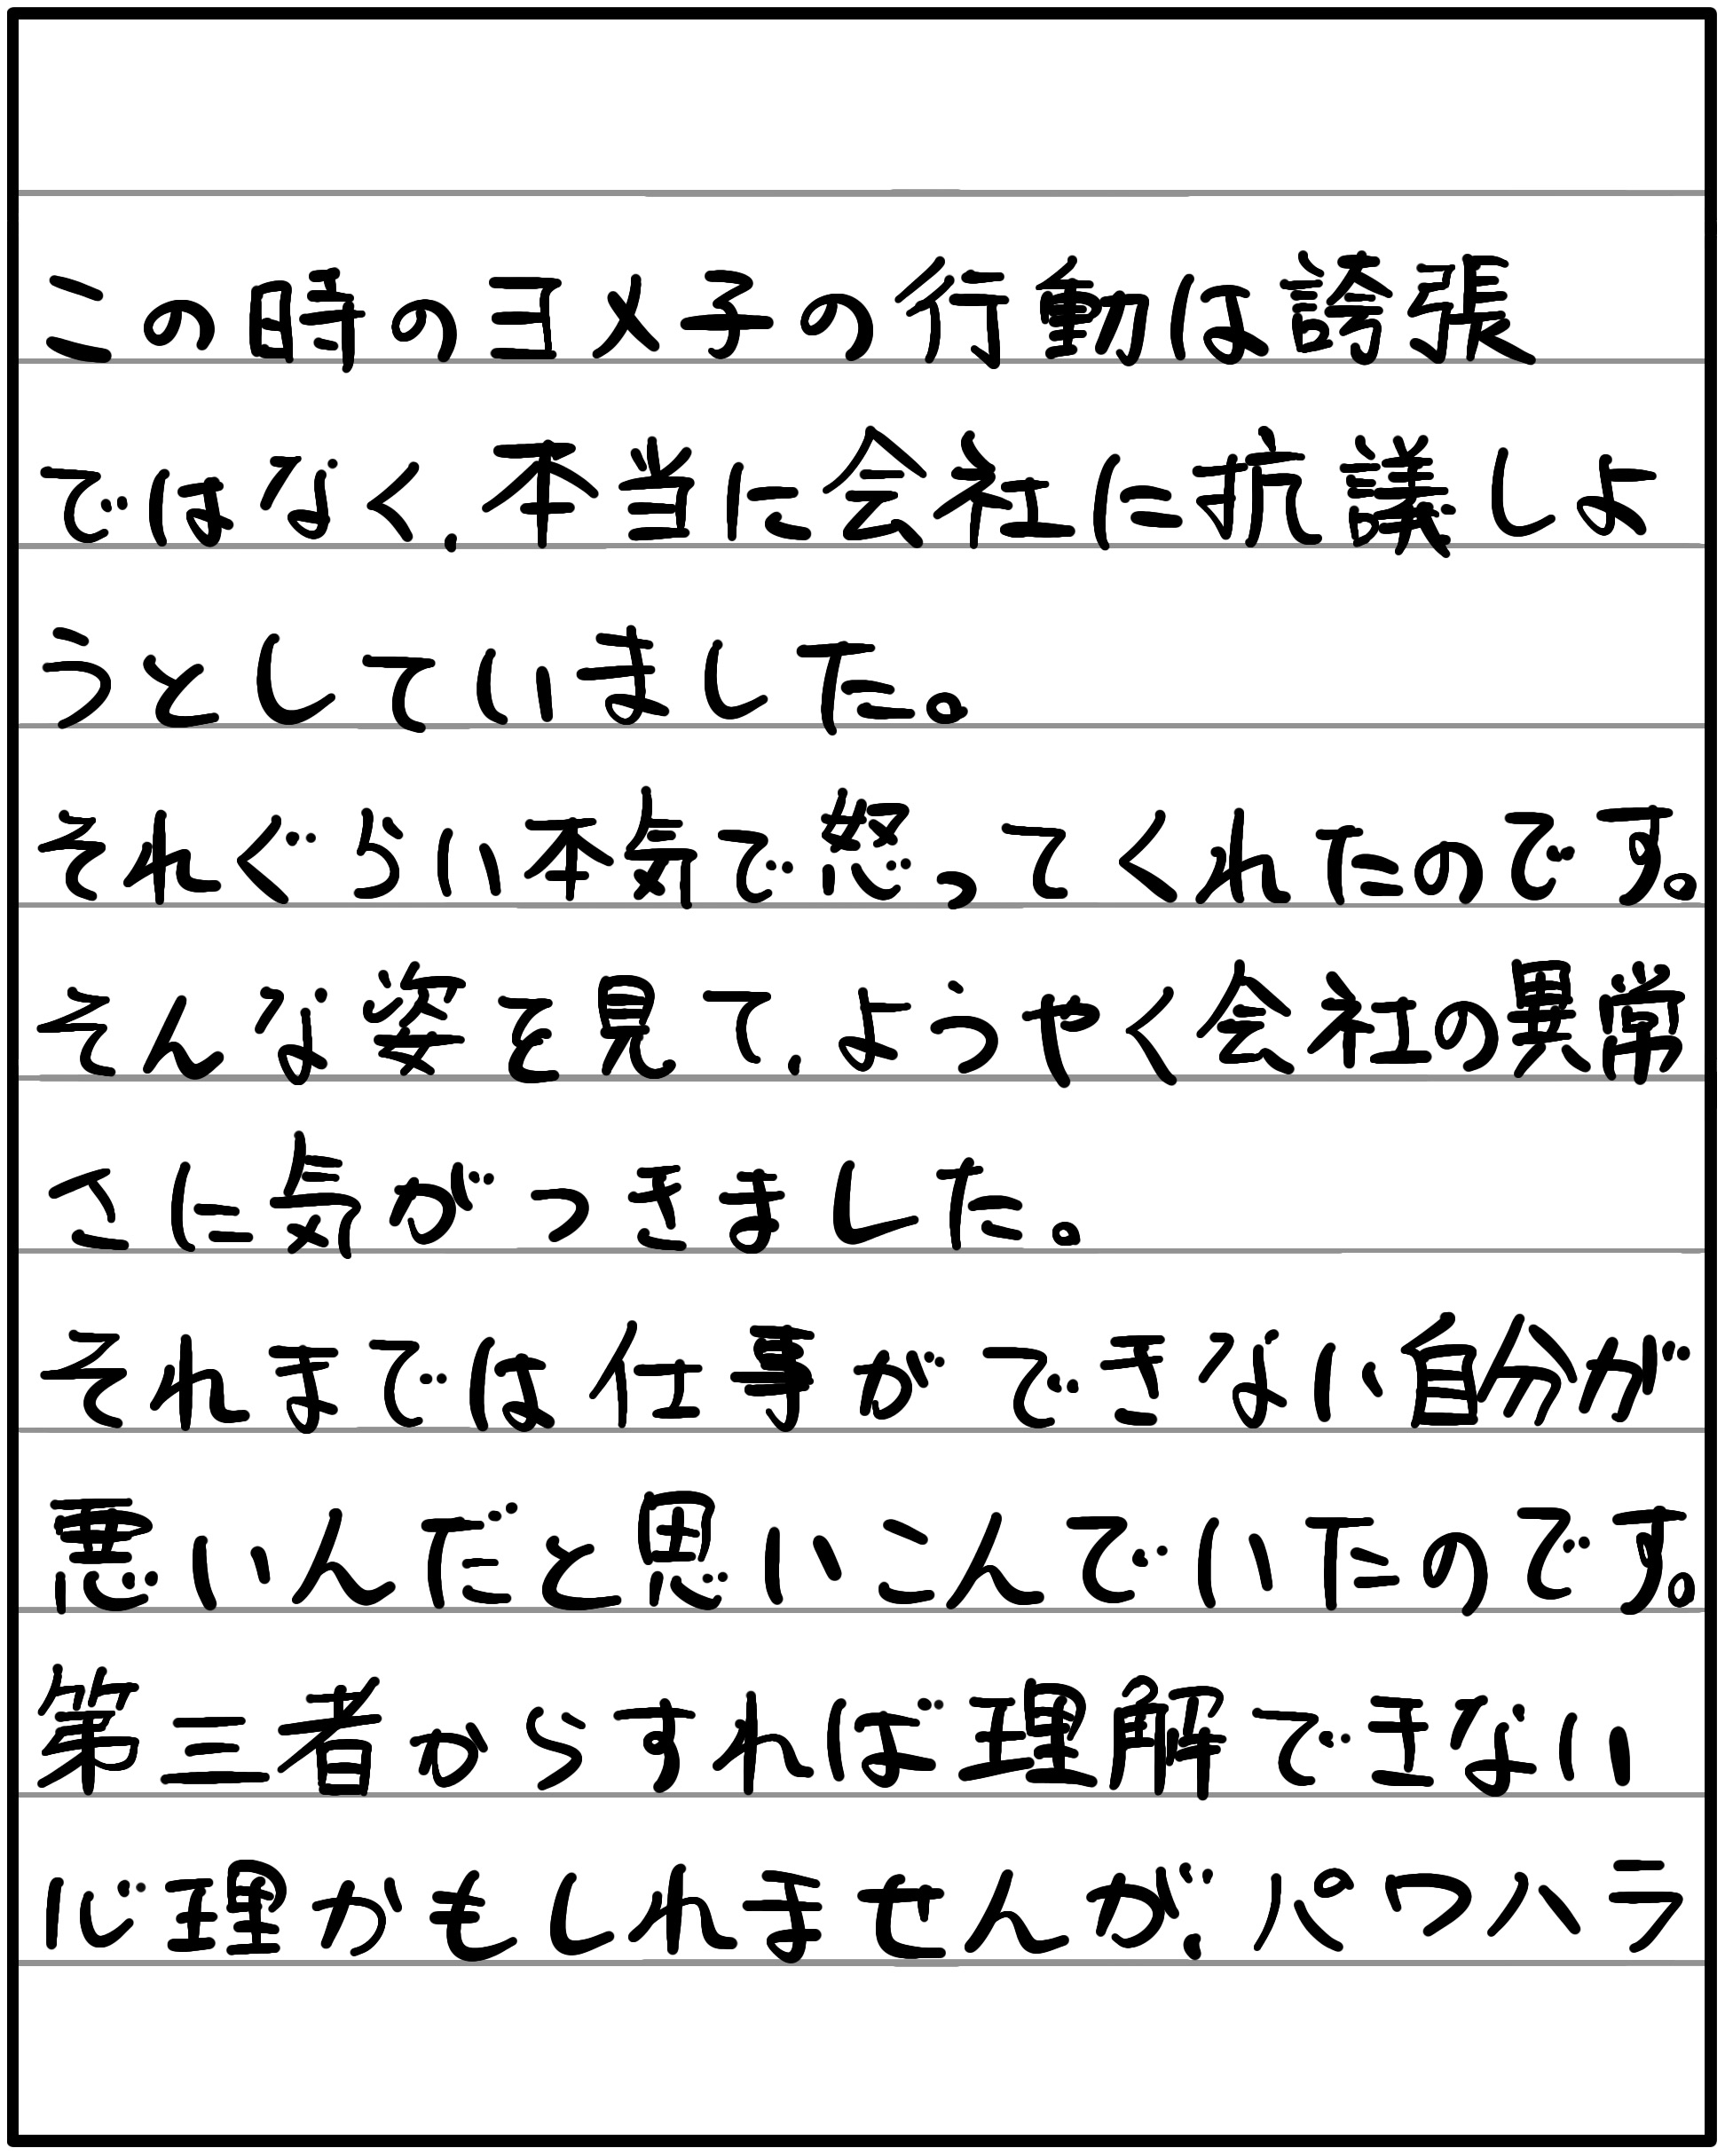 この時のヨメ子の行動は誇張
ではなく、本当に会社に抗議しよ
うとしていました。
それぐらい本気で怒ってくれたのです。
そんな姿を見て、ようやく会社の異常
さに気がつきました。
それまでは仕事ができない自分が
悪いんだと思いこんでいたのです。
第三者からすれば理解できない
心理かもしれませんが、パワハラ